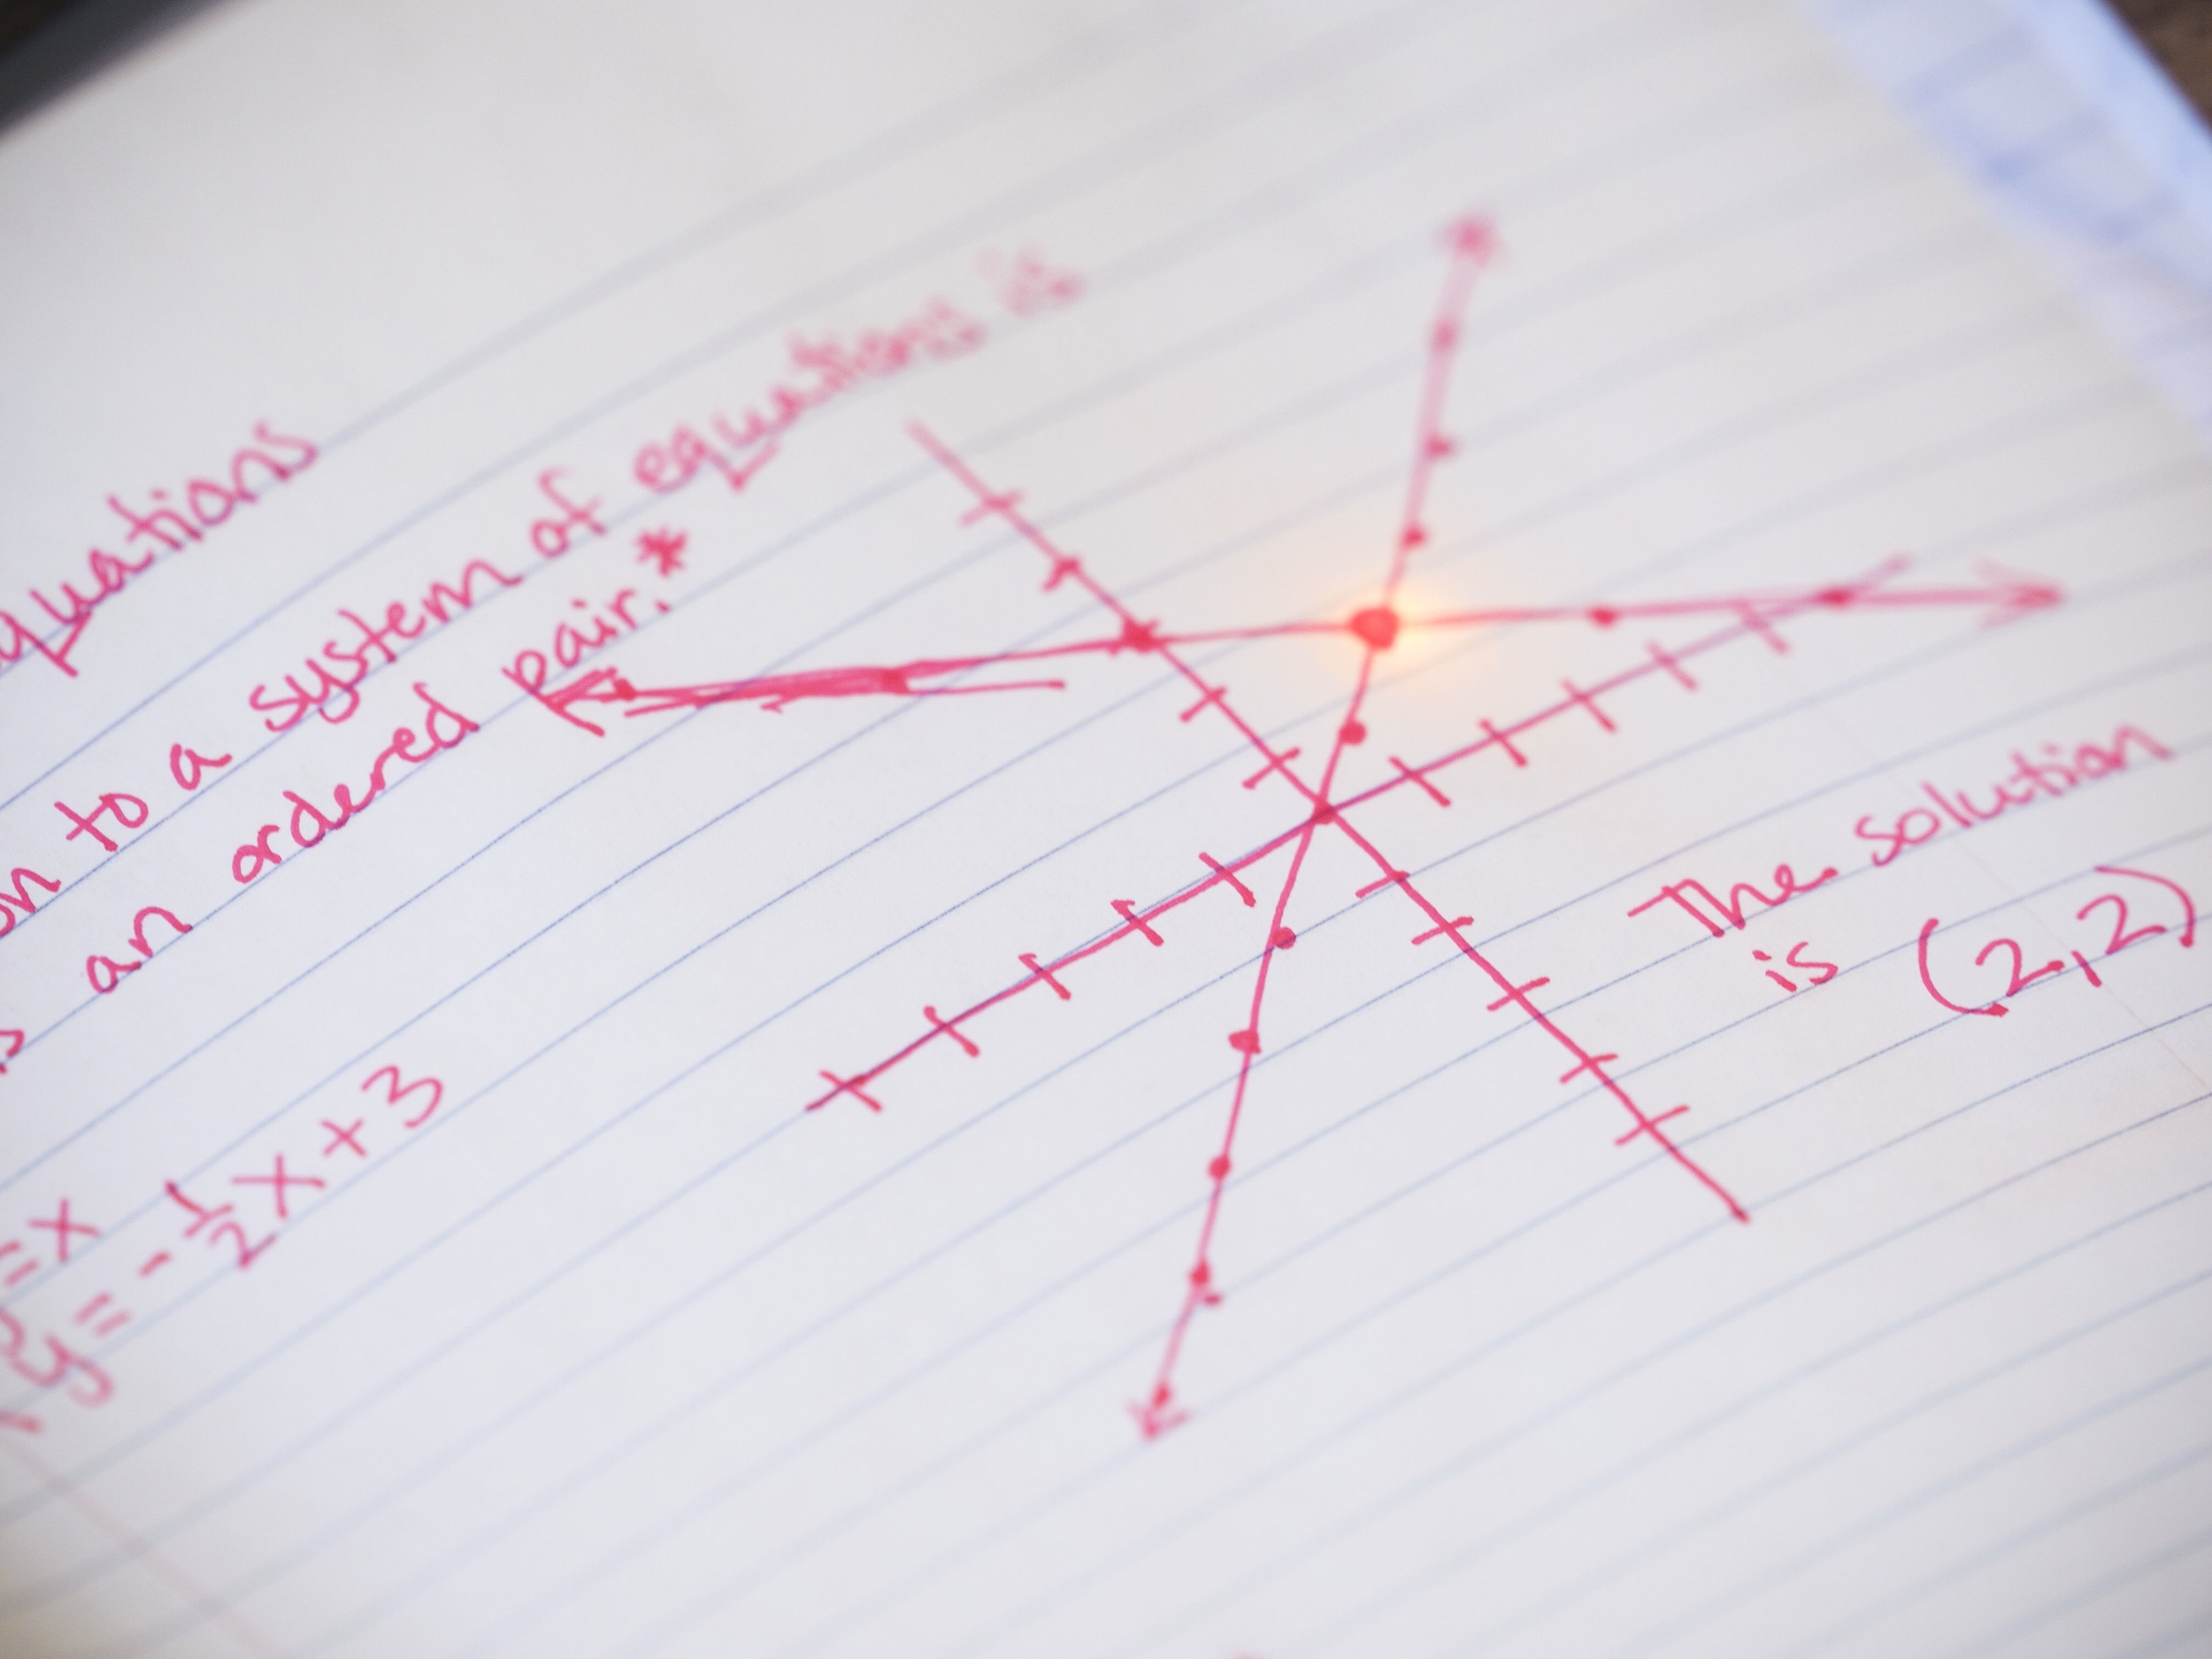 quations
on to a system of equations is
s an ordered pair. *
=x
y = -1/2 x + 3
The solution
is (2,2)